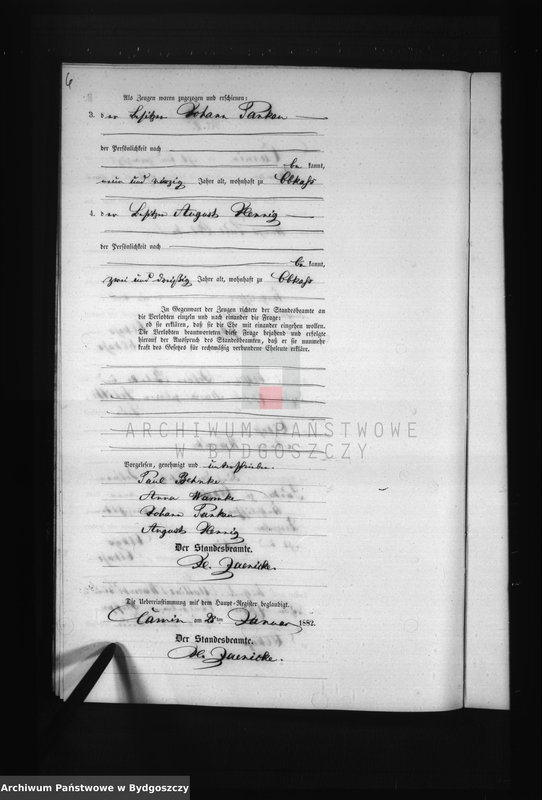 6
Als Zeugen waren zugezogen und erschienen:
3. der Besitzer Johann Pankau
der Persönlichkeit nach
be kannt,
neun und vierzig Jahre alt, wohnhaft zu Obkaß
4. der Besitzer August Hennig
der Persönlichkeit nach
be kannt,
zwei und dreißig Jahre alt, wohnhaft zu Obkaß
In Gegenwart der Zeugen richtete der Standesbeamte an
die Verlobten einzeln und nach einander die Frage:
ob sie erklären, daß sie die Ehe mit einander eingehen wollen.
Die Verlobten beantworteten diese Frage bejahend und erfolgte
hierauf der Ausspruch des Standesbeamten, daß er sie nunmehr
kraft des Gesetzes für rechtmäßig verbundene Eheleute erkläre.
ARCHIWUM PAŃSTWOWE
W BYDGOSZCZY
Vorgelesen, genehmigt und unterschrieben.
Paul Behnke
Anna Warnke
Johann Pankau
August Hennig
Der Standesbeamte.
Jaenicke.
Die Uebereinstimmung mit dem Haupt-Register beglaubigt.
Camin am 2ten Januar 1882.
Der Standesbeamte.
Jaenicke.
Archiwum Państwowe w Bydgoszczy